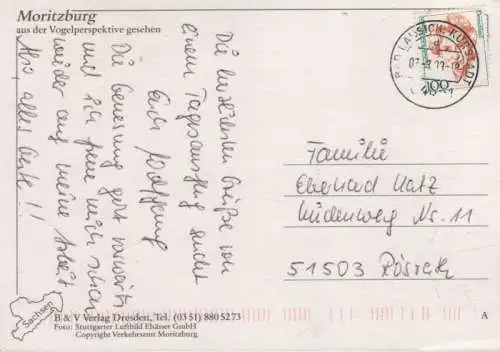 Moritzburg
aus der Vogelperspektive gesehen
Die herzlichsten Grüße von
einem Tagesausflug sendet
Euch
Die Genesung geht vorwärts
und ich freue mich schon
wieder auf meine Arbeit
Also, alles Gute!!
BAD LAUSICK, KURSTADT
100
Familie
Eberhard
Nr. 11
51503 Rösrath
Sachsen
B & V Verlag Dresden, Tel. (0351) 8805273
Foto: Stuttgarter Luftbild Elsäßer GmbH
Copyright Verkehrsamt Moritzburg
A